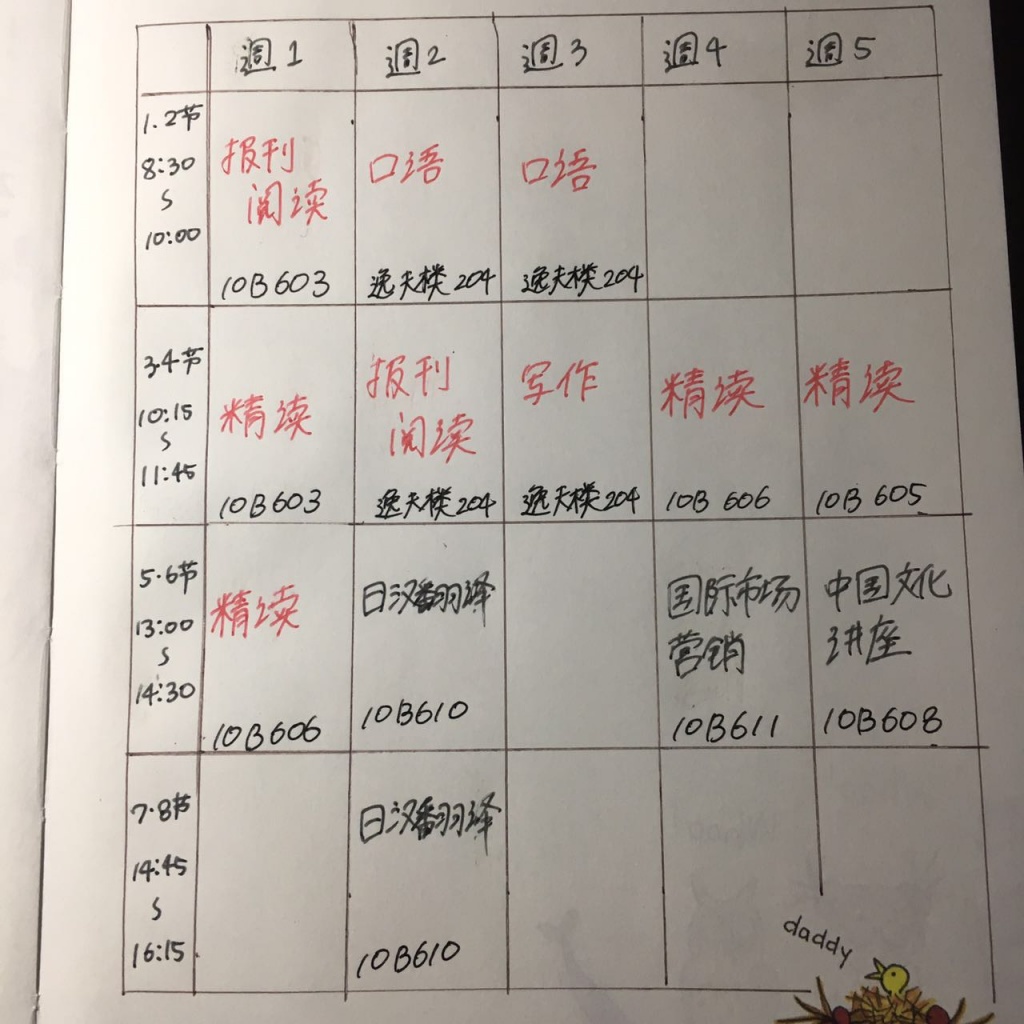 週1 週2 週3 週4 週5
1.2节
8:30
S
10:00
报刊
阅读
10B603
口语
逸夫楼204
口语
逸夫楼204
3.4节
10:15
S
11:45
精读
10B603
报刊
阅读
逸夫楼204
写作
逸夫楼204
精读
10B 606
精读
10B 605
5·6节
13:00
S
14:30
精读
10B606
日汉翻译
10B610
国际市场
营销
10B611
中国文化
讲座
10B608
7·8节
14:45
S
16:15
日汉翻译
10B610
daddy